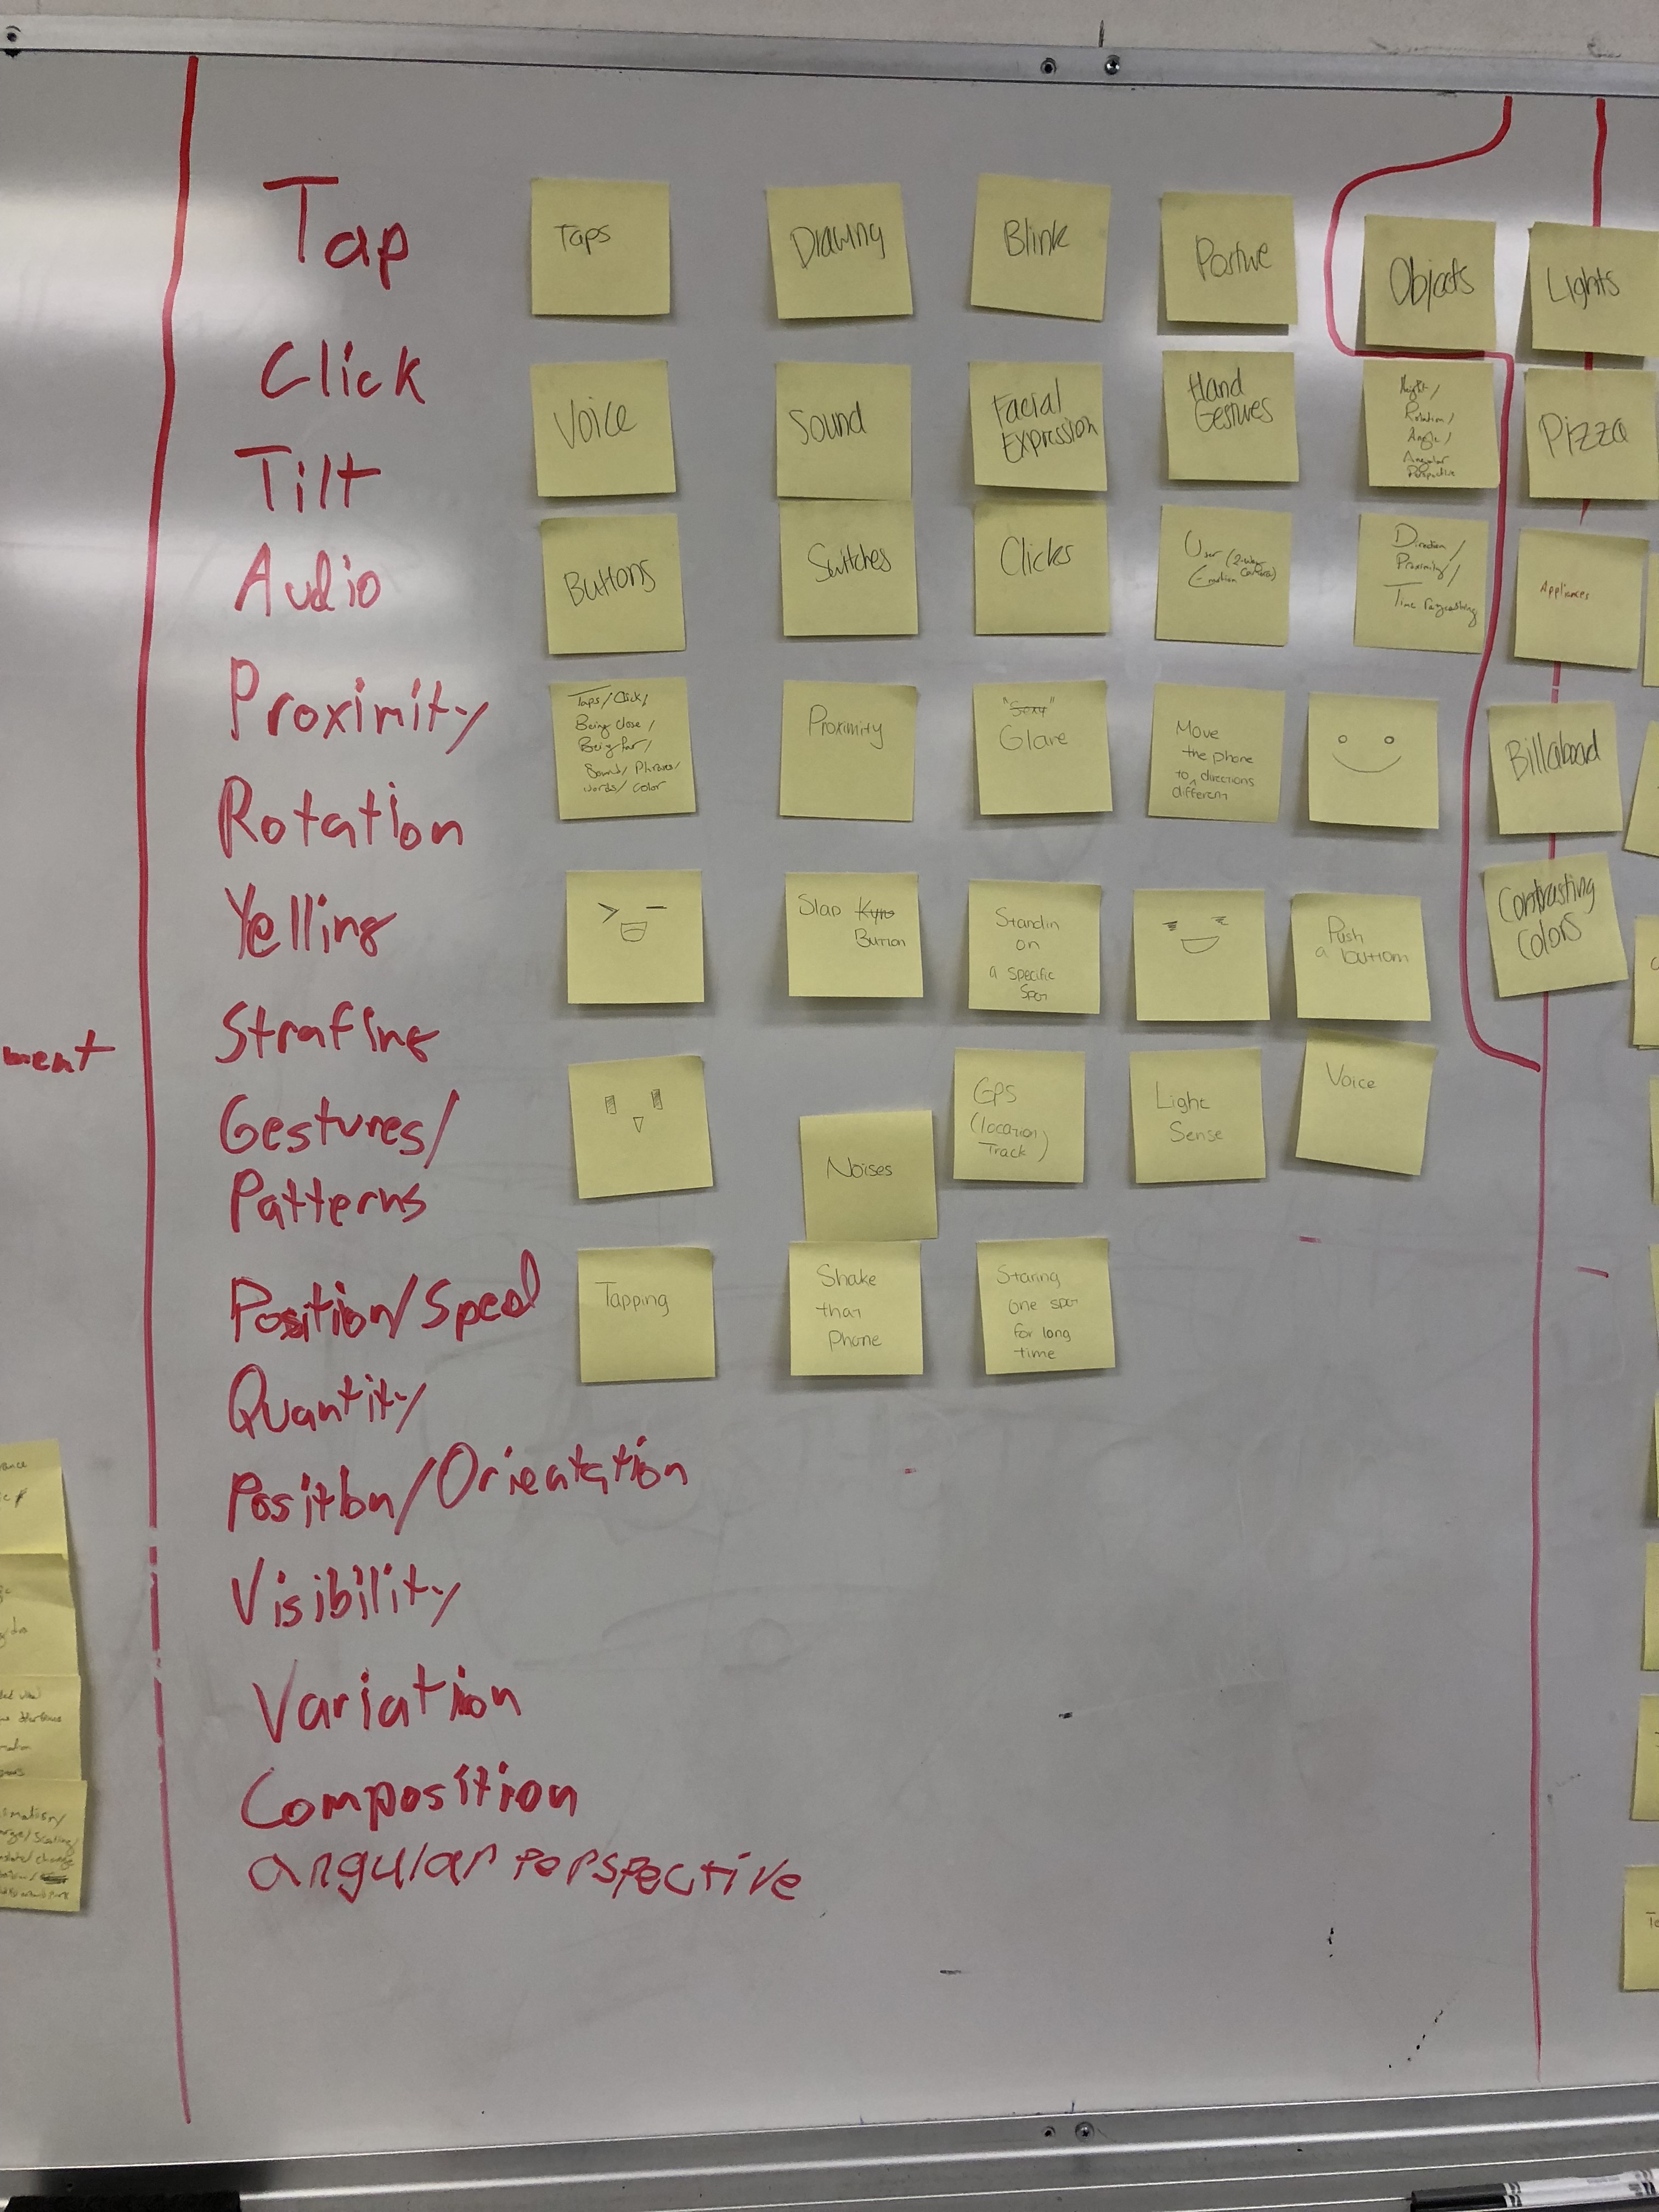 Tap
Click
Tilt
Audio
Proximity
Rotation
Yelling
Strafing
Gestures/
Patterns
Position/Speed
Quantity
Position/Orientation
Visibility
Variation
Composition
angular perspective
Taps
Drawing
Blink
Posture
Objects
Lights
Voice
Sound
Facial
Expression
Hand
Gestures
Rotation/
Angle/
Angular
Perspective
Pizza
Buttons
Switches
Clicks
User (2-way
Emotion
Direction/
Proximity/
Time
Appliances
Taps/Click/
Being close/
Being far/
Sound/Phrases/
words/color
Proximity
"Sexy"
Glare
Move
the phone
to directions
different
Billaboad
Slap
Button
Standin
on
a specific
Spot
Push
a buttom
Contrasting
Colors
Noises
GPS
(location
Track)
Light
Sense
Voice
Tapping
Shake
that
Phone
Staring
one spot
for long
time
ment